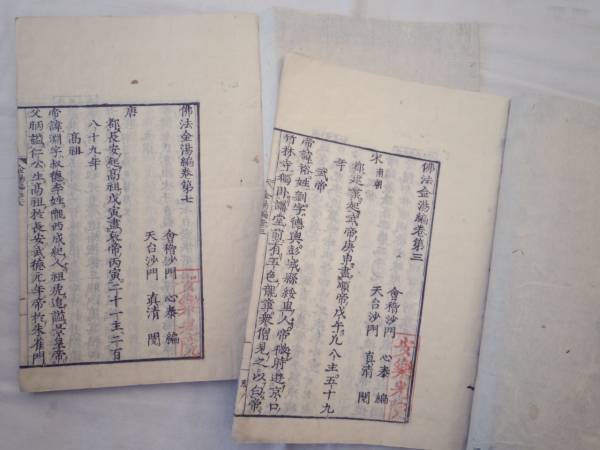 佛法金湯編卷第三
會稽沙門 心泰 編
天台沙門 真清 閱
宋 南朝
都建業起武帝庚申盡順帝戊午凡八主五十九
年
武帝
帝諱裕姓劉字德輿彭城縣綏輿人帝微時遊京口
竹林寺獨卧講堂前有五色龍章衆僧見之以白帝
金湯編卷三
佛法金湯編卷第七
會稽沙門 心泰 編
天台沙門 真清 閱
唐
都長安起高祖戊寅盡哀帝丙寅二十一主二百
八十九年
高祖
帝諱淵字叔德李姓隴西成紀人祖虎追謚景皇帝
父昞謚仁公生高祖於長安武德元年帝於朱雀門